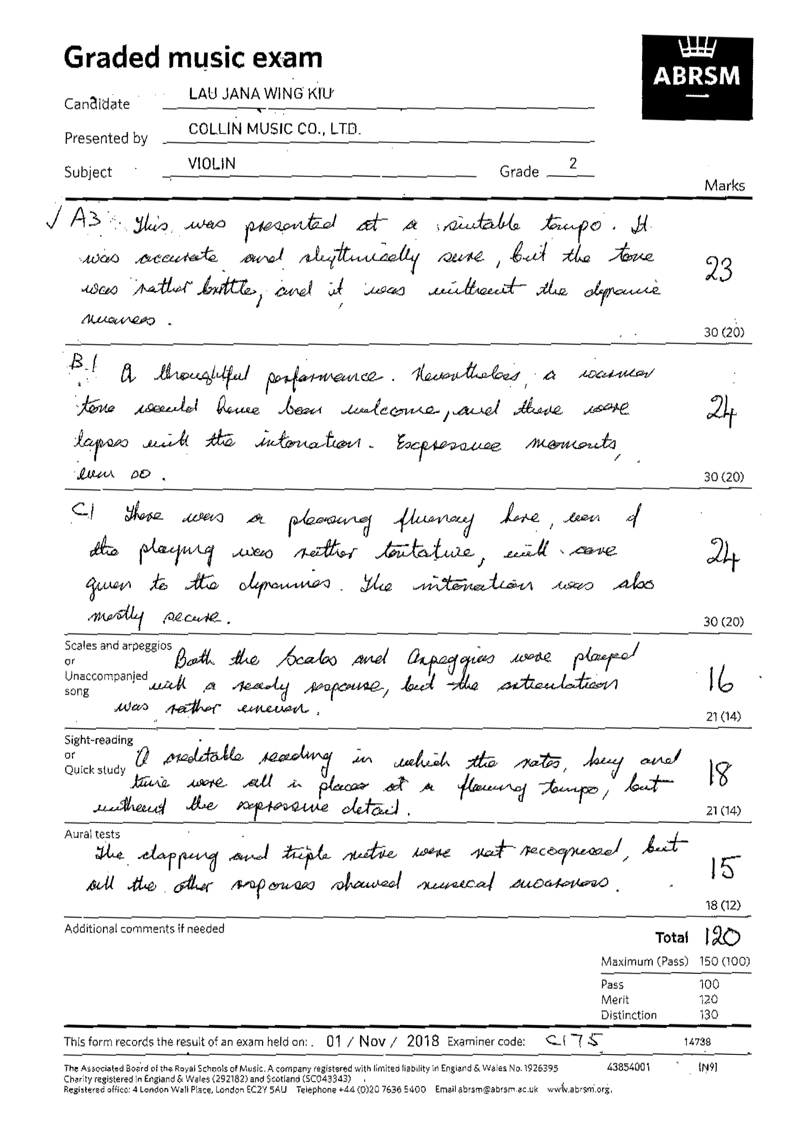 Graded music exam
ABRSM
Candidate LAU JANA WING KIU
Presented by COLLIN MUSIC CO., LTD.
Subject VIOLIN Grade 2
Marks
✓ A3 This was presented at a suitable tempo. It
was accurate and rhythmically sure, but the tone
was rather brittle, and it was without the dynamic
nuances.
23
30 (20)
B.1 A thoughtful performance. Nevertheless, a warmer
tone would have been welcome, and there were
lapses with the intonation. Expressive moments,
even so.
24
30 (20)
C1 There was a pleasing fluency here, even if
the playing was rather tentative, with care
given to the dynamics. The intonation was also
mostly secure.
24
30 (20)
Scales and arpeggios
or
Unaccompanied
song
Both the Scales and Arpeggios were played
with a ready response, but the articulation
was rather uneven.
16
21 (14)
Sight-reading
or
Quick study
A creditable reading in which the notes, key and
time were all in places at a flowing tempo, but
without the expressive detail.
18
21 (14)
Aural tests
The clapping and triple metre were not recognised, but
all the other responses showed musical awareness.
15
18 (12)
Additional comments if needed
Total 120
Maximum (Pass) 150 (100)
Pass 100
Merit 120
Distinction 130
This form records the result of an exam held on: 01 / Nov / 2018 Examiner code: C175 14738
The Associated Board of the Royal Schools of Music. A company registered with limited liability in England & Wales No. 1926395 43854001 [N9]
Charity registered in England & Wales (292182) and Scotland (SC043343)
Registered office: 4 London Wall Place, London EC2Y 5AU Telephone +44 (0)20 7636 5400 Email abrsm@abrsm.ac.uk www.abrsm.org.